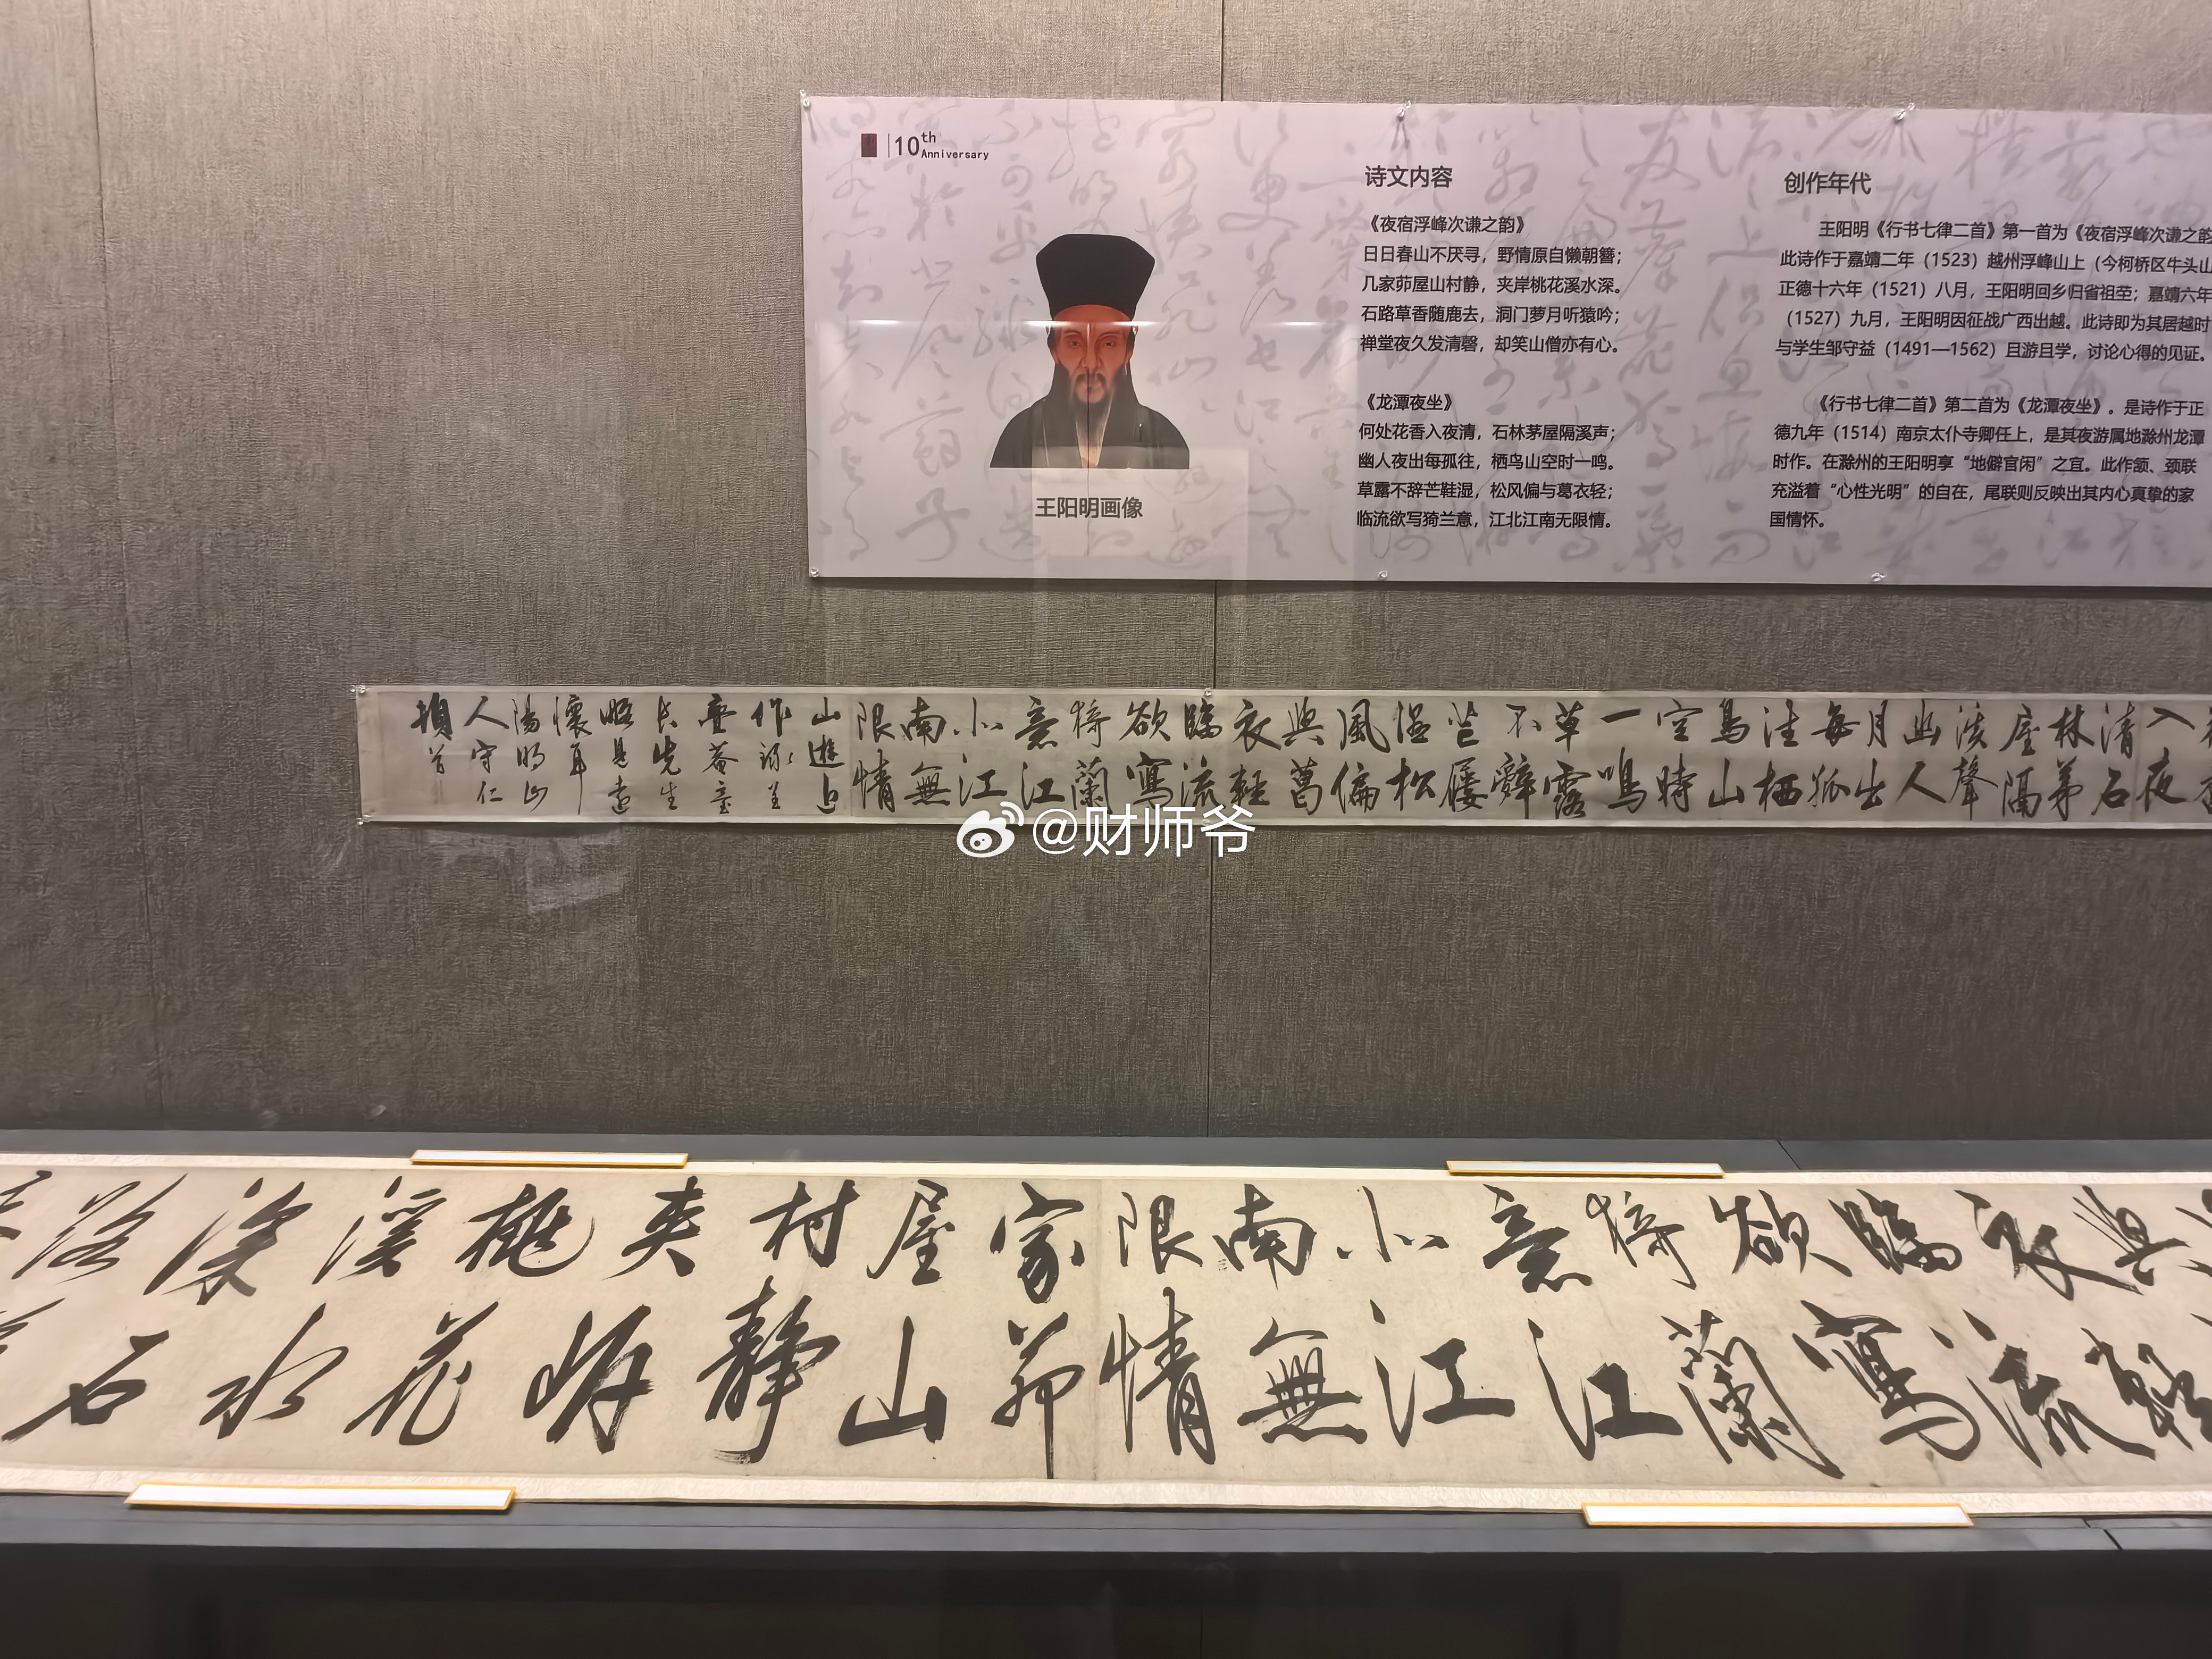 10th
Anniversary
王阳明画像
诗文内容
《夜宿浮峰次谦之韵》
日日春山不厌寻，野情原自懒朝簪；
几家茆屋山村静，夹岸桃花溪水深。
石路草香随鹿去，洞门萝月听猿吟；
禅堂夜久发清磬，却笑山僧亦有心。
《龙潭夜坐》
何处花香入夜清，石林茅屋隔溪声；
幽人夜出每孤往，栖鸟山空时一鸣。
草露不辞芒鞋湿，松风偏与葛衣轻；
临流欲写猗兰意，江北江南无限情。
创作年代
王阳明《行书七律二首》第一首为《夜宿浮峰次谦之韵
此诗作于嘉靖二年（1523）越州浮峰山上（今柯桥区牛头山
正德十六年（1521）八月，王阳明回乡归省祖茔；嘉靖六年
（1527）九月，王阳明因征战广西出越。此诗即为其居越时
与学生邹守益（1491—1562）且游且学，讨论心得的见证。
《行书七律二首》第二首为《龙潭夜坐》。是诗作于正
德九年（1514）南京太仆寺卿任上，是其夜游属地滁州龙潭
时作。在滁州的王阳明享“地僻官闲”之宜。此作颔、颈联
充溢着“心性光明”的自在，尾联则反映出其内心真挚的家
国情怀。
入夜
清石
林茅
屋隔
溪聲
幽人
月出
每孤
往栖
鳥山
空時
一鳴
草露
不辭
芒屨
濕松
風偏
與葛
衣輕
臨流
欲寫
猗蘭
意江
北江
南無
限情
山遊近
作録呈
長先生
略見遠
懷耳
陽明山
人守仁
頓首
@财师爷
與
衣輕
臨流
欲寫
猗蘭
意江
北江
南無
限情
家茆
屋山
村静
夾岸
桃花
溪水
深石
路